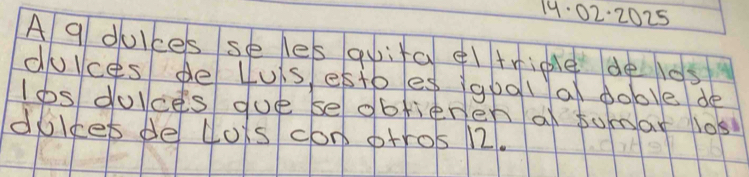 14.02.2025
A 9 dulces se les quita el triple de los
dulces de Luis, esto es igual al doble de
los dulces que se obtienen al sumar los
dulces de Luis con otros 12.